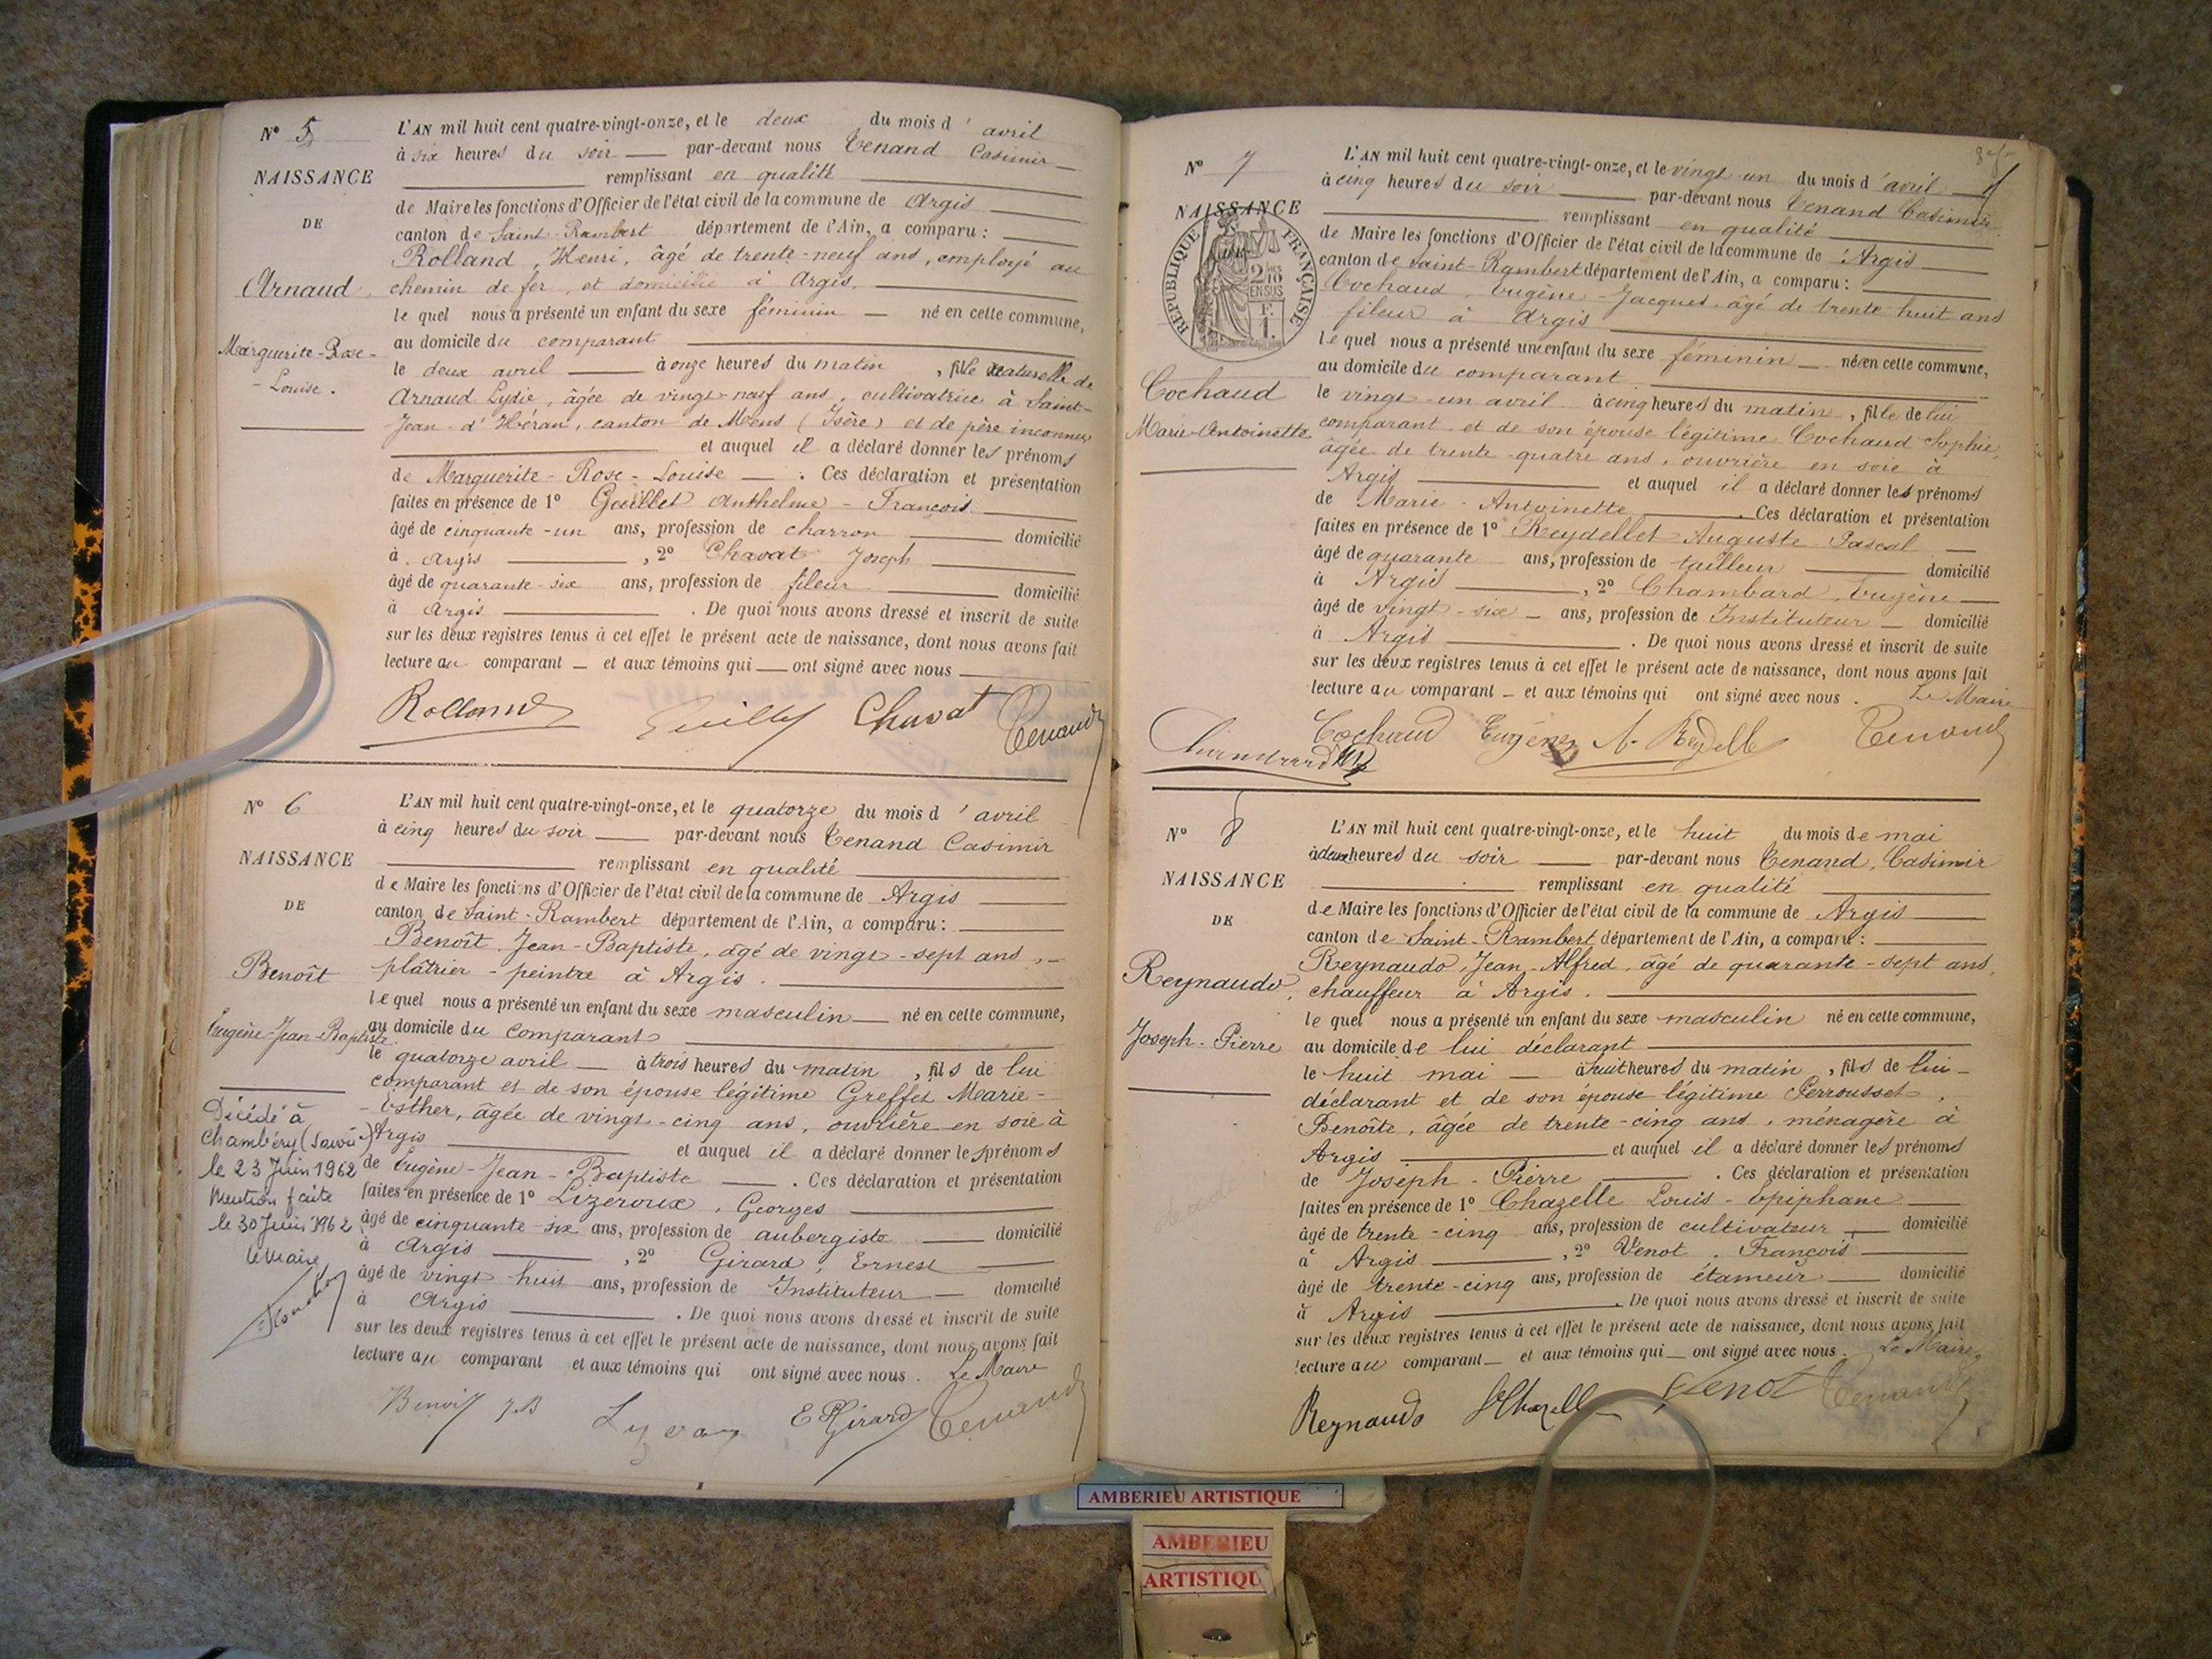 N° 5
NAISSANCE
DE
Arnaud
Marguerite-Rose-
-Louise.
L'AN mil huit cent quatre-vingt-onze, et le deux du mois d'avril
à six heures du soir — par-devant nous Tenand Casimir
remplissant en qualité
de Maire les fonctions d'Officier de l'état civil de la commune de Argis
canton de Saint-Rambert département de l'Ain, a comparu :
Rolland, Henri, âgé de trente-neuf ans, employé au
chemin de fer, et domicilié à Argis.
le quel nous a présenté un enfant du sexe féminin — né en cette commune,
au domicile du comparant
le deux avril — à onze heures du matin, fille naturelle de
Arnaud Lydie, âgée de vingt-neuf ans, cultivatrice à Saint-
Jean-d'Héran, canton de Mens (Isère) et de père inconnu
et auquel il a déclaré donner les prénoms
de Marguerite-Rose-Louise — . Ces déclaration et présentation
faites en présence de 1° Guillet Anthelme-François
âgé de cinquante-un ans, profession de charron — domicilié
à Argis — , 2° Chavat Joseph
âgé de quarante-six ans, profession de fileur — domicilié
à Argis — . De quoi nous avons dressé et inscrit de suite
sur les deux registres tenus à cet effet le présent acte de naissance, dont nous avons fait
lecture au comparant — et aux témoins qui — ont signé avec nous
Rolland Chavat Tenand
N° 6
NAISSANCE
DE
Benoît
Eugène-Jean-Baptiste
Décédé à
Chambéry (Savoie)
le 23 Juin 1962
Mention faite
le 30 Juin 1962
le Maire
L'AN mil huit cent quatre-vingt-onze, et le quatorze du mois d'avril
à cinq heures du soir — par-devant nous Tenand Casimir
remplissant en qualité
de Maire les fonctions d'Officier de l'état civil de la commune de Argis
canton de Saint-Rambert département de l'Ain, a comparu :
Benoît Jean-Baptiste, âgé de vingt-sept ans,
plâtrier-peintre à Argis.
le quel nous a présenté un enfant du sexe masculin — né en cette commune,
au domicile du comparant
le quatorze avril — à trois heures du matin, fils de lui
comparant et de son épouse légitime Greffet Marie-
Esther, âgée de vingt-cinq ans, ouvrière en soie à
Argis — et auquel il a déclaré donner les prénoms
de Eugène-Jean-Baptiste — . Ces déclaration et présentation
faites en présence de 1° Lizeroux, Georges
âgé de cinquante-six ans, profession de aubergiste — domicilié
à Argis — , 2° Girard, Ernest
âgé de vingt-huit ans, profession de Instituteur — domicilié
à Argis — . De quoi nous avons dressé et inscrit de suite
sur les deux registres tenus à cet effet le présent acte de naissance, dont nous avons fait
lecture au comparant et aux témoins qui ont signé avec nous. Le Maire
Benoit J.B E Girard Tenand
N° 7
NAISSANCE
DE
RÉPUBLIQUE FRANÇAISE
2/10 EN SUS
F. 1.
Cochaud
Marie-Antoinette
L'AN mil huit cent quatre-vingt-onze, et le vingt-un du mois d'avril
à cinq heures du soir — par-devant nous Tenand Casimir
remplissant en qualité
de Maire les fonctions d'Officier de l'état civil de la commune de Argis
canton de Saint-Rambert département de l'Ain, a comparu :
Cochaud, Eugène-Jacques, âgé de trente huit ans
fileur à Argis
le quel nous a présenté un enfant du sexe féminin — née en cette commune,
au domicile du comparant
le vingt-un avril à cinq heures du matin, fille de lui
comparant et de son épouse légitime Cochaud Sophie,
âgée de trente-quatre ans, ouvrière en soie à
Argis — et auquel il a déclaré donner les prénoms
de Marie-Antoinette — . Ces déclaration et présentation
faites en présence de 1° Reydellet Auguste Pascal
âgé de quarante ans, profession de tailleur — domicilié
à Argis — , 2° Chambard, Eugène
âgé de vingt-six — ans, profession de Instituteur — domicilié
à Argis — . De quoi nous avons dressé et inscrit de suite
sur les deux registres tenus à cet effet le présent acte de naissance, dont nous avons fait
lecture au comparant — et aux témoins qui ont signé avec nous. Le Maire
Cochaud Eugène A. Reydelle Tenand
N° 8
NAISSANCE
DE
Reynaudo,
Joseph-Pierre
L'AN mil huit cent quatre-vingt-onze, et le huit du mois de mai
à deux heures du soir — par-devant nous Tenand, Casimir
remplissant en qualité
de Maire les fonctions d'Officier de l'état civil de la commune de Argis
canton de Saint-Rambert département de l'Ain, a comparu :
Reynaudo, Jean-Alfred, âgé de quarante-sept ans,
chauffeur à Argis.
le quel nous a présenté un enfant du sexe masculin né en cette commune,
au domicile de lui déclarant
le huit mai — à huit heures du matin, fils de lui-
déclarant et de son épouse légitime Perrousset,
Benoîte, âgée de trente-cinq ans, ménagère à
Argis — et auquel il a déclaré donner les prénoms
de Joseph-Pierre — . Ces déclaration et présentation
faites en présence de 1° Chazelle Louis-Epiphane
âgé de trente-cinq ans, profession de cultivateur — domicilié
à Argis — , 2° Venot, François
âgé de trente-cinq ans, profession de étameur — domicilié
à Argis — . De quoi nous avons dressé et inscrit de suite
sur les deux registres tenus à cet effet le présent acte de naissance, dont nous avons fait
lecture au comparant — et aux témoins qui — ont signé avec nous. Le Maire
Reynaudo Venot Tenand
AMBERIEU ARTISTIQUE
AMBERIEU
ARTISTIQU